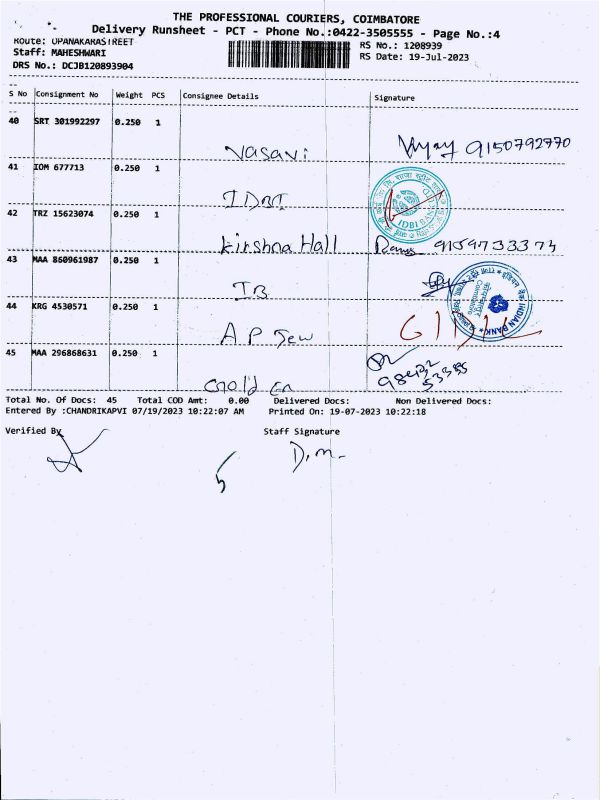 THE PROFESSIONAL COURIERS, COIMBATORE
Delivery Runsheet - PCT - Phone No.:0422-3505555 - Page No.:4
Route: OPANAKARASTREET
Staff: MAHESHWARI
DRS No.: DCJB120893904
RS No.: 1208939
RS Date: 19-Jul-2023
S No Consignment No Weight PCS Consignee Details Signature
40 SRT 301992297 0.250 1 Vasavi Vijay 9150792770
41 IOM 677713 0.250 1 IDBI
IDBI BANK LTD
42 TRZ 15623074 0.250 1 kirshna Hall 9159733373
43 MAA 860961987 0.250 1 IB
INDIAN BANK
Coimbatore
44 KRG 4530571 0.250 1 A P Jew
45 MAA 296868631 0.250 1 Gold en
Total No. Of Docs: 45 Total COD Amt: 0.00 Delivered Docs: Non Delivered Docs:
Entered By :CHANDRIKAPVI 07/19/2023 10:22:07 AM Printed On: 19-07-2023 10:22:18
Verified By
Staff Signature
D.m.
5